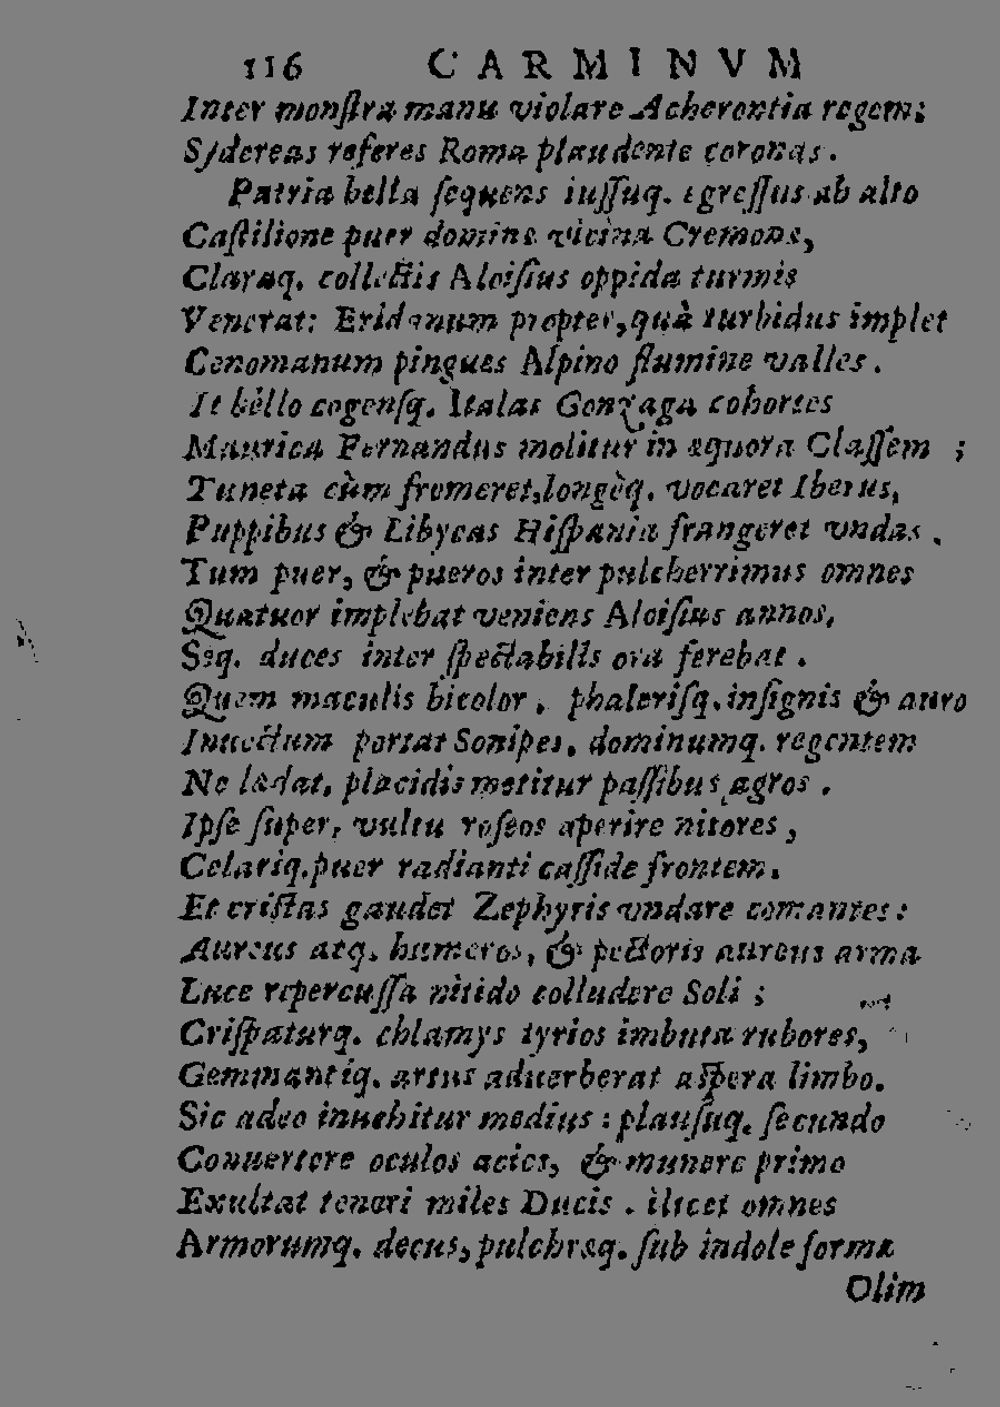 116 CARMINVM
Inter monſtra manu violare Acherontia regem;
Sydereas referes Roma plaudente coronas.
Patria bella ſequens iuſſuq. egreſſus ab alto
Caſtilione puer domine vicina Cremone,
Claraq. collectis Aloiſius oppida turmis
Venerat: Eridanum propter, quà turbidus implet
Cenomanum pingues Alpino flumine valles.
It bello cogenſq. Italas Gonzaga cohortes
Maurica Fernandus molitur in æquora Claſſem ;
Tuneta cùm fremeret, longèq. vocaret Iberus,
Puppibus & Libycas Hiſpania frangeret vndas.
Tum puer, & pueros inter pulcherrimus omnes
Quatuor implebat veniens Aloiſius annos,
Seq. duces inter ſpectabilis ora ferebat.
Quem maculis bicolor, phaleriſq. inſignis & auro
Inuectum portat Sonipes, dominumq. regentem
Ne lædat, placidis metitur paſſibus agros.
Ipſe ſuper, vultu roſeos aperire nitores,
Celariq. puer radianti caſſide frontem.
Et criſtas gaudet Zephyris vndare comantes:
Aureus atq. humeros, & pectoris aureus arma
Luce repercuſſa nitido colludere Soli ;
Criſpaturq. chlamys tyrios imbuta rubores,
Gemmantiq. artus aduerberat aſpera limbo.
Sic adeo inuehitur medius : plauſuq. ſecundo
Conuertere oculos acies, & munere primo
Exultat teneri miles Ducis. ilicet omnes
Armorumq. decus, pulchræq. ſub indole formæ
Olim